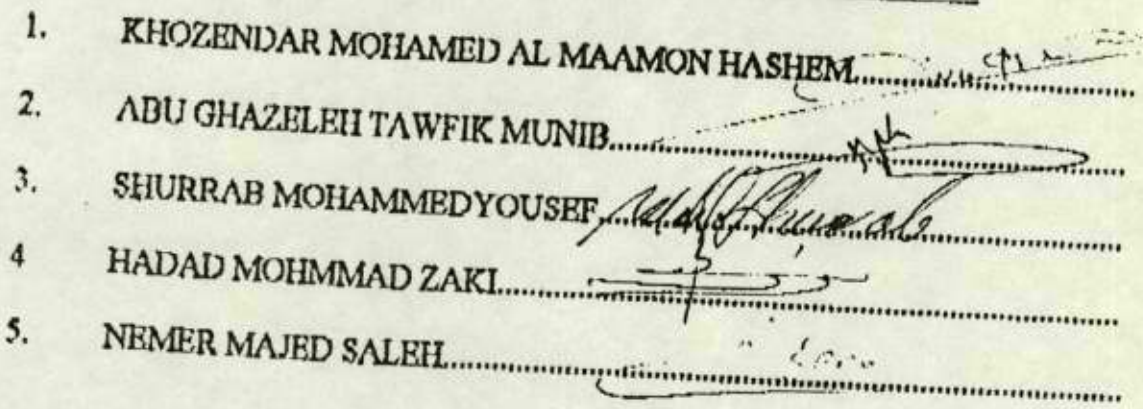 1. KHOZENDAR MOHAMED AL MAAMON HASHEM
2. ABU GHAZELEH TAWFIK MUNIB
3. SHURRAB MOHAMMEDYOUSEF
4 HADAD MOHMMAD ZAKI
5. NEMER MAJED SALEH